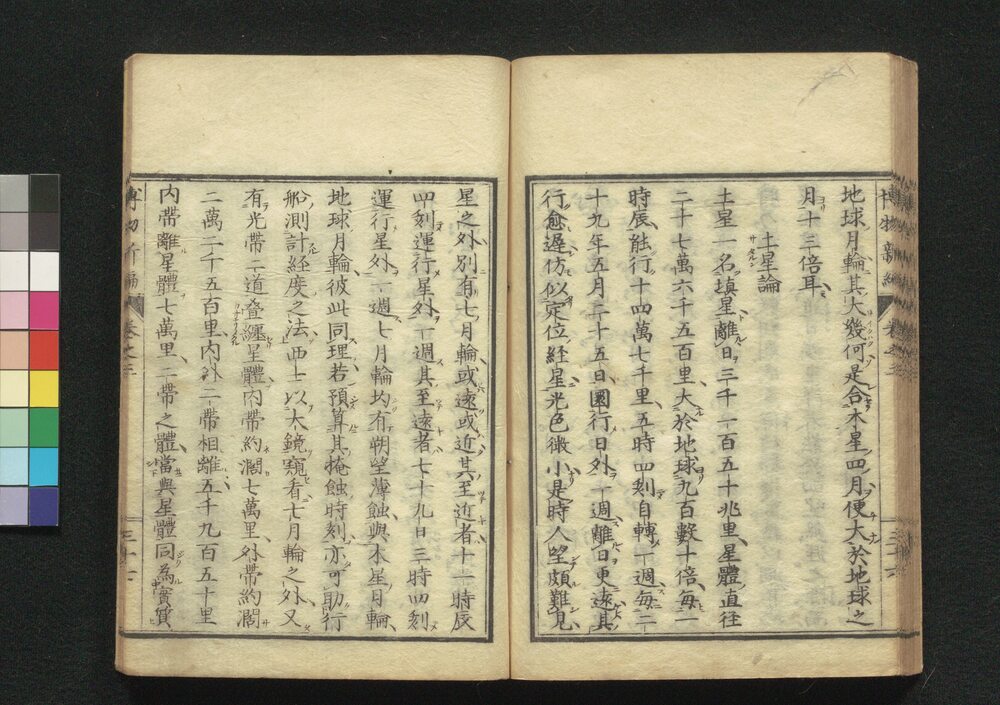 地球月輪其大幾何是合木星四月便大於地球之
月十三倍耳
土星論
土星一名塡星離日三千一百五十兆里星體直徃
二十七萬六千五百里大於地球九百數十倍每一
時辰能行十四萬七千里五時四刻自轉一週每二
十九年五月二十五日圜行日外一週離日更遠其
行愈遲彷似定位経星光色微小是時人望頗難見
星之外別有七月輪或遠或近其至近者十一時辰
四刻運行星外一週其至遠者七十九日三時四刻
運行星外一週七月輪均有朔望薄蝕與木星月輪
地球月輪彼此同理若預算其掩蝕時刻亦可助行
船測計経度之法西士以大鏡窺看七月輪之外又
有光帶二道叠纒星體內帶約濶七萬里外帶約濶
二萬二千五百里內外二帶相離五千九百五十里
內帶離星體七萬里二帶之體當與星體同為實質
博物新編
卷之二